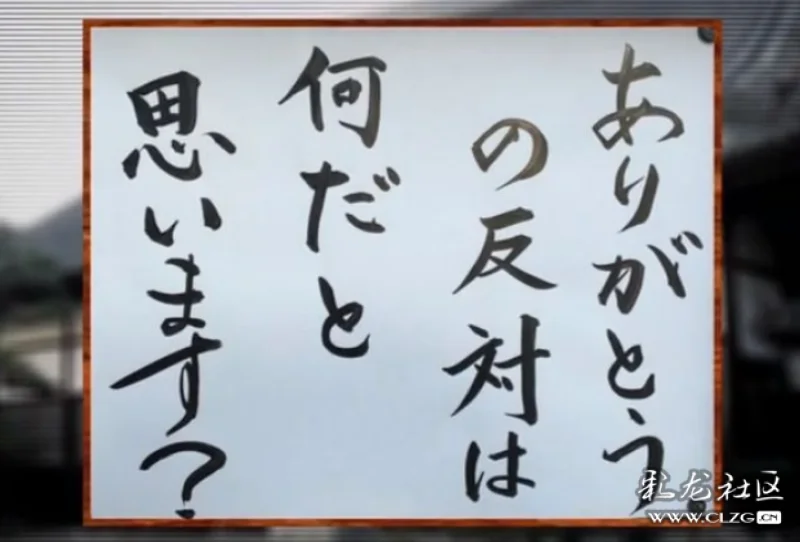 ありがとう
の反対は
何だと
思います?
彩龙社区
WWW.CLZG.CN